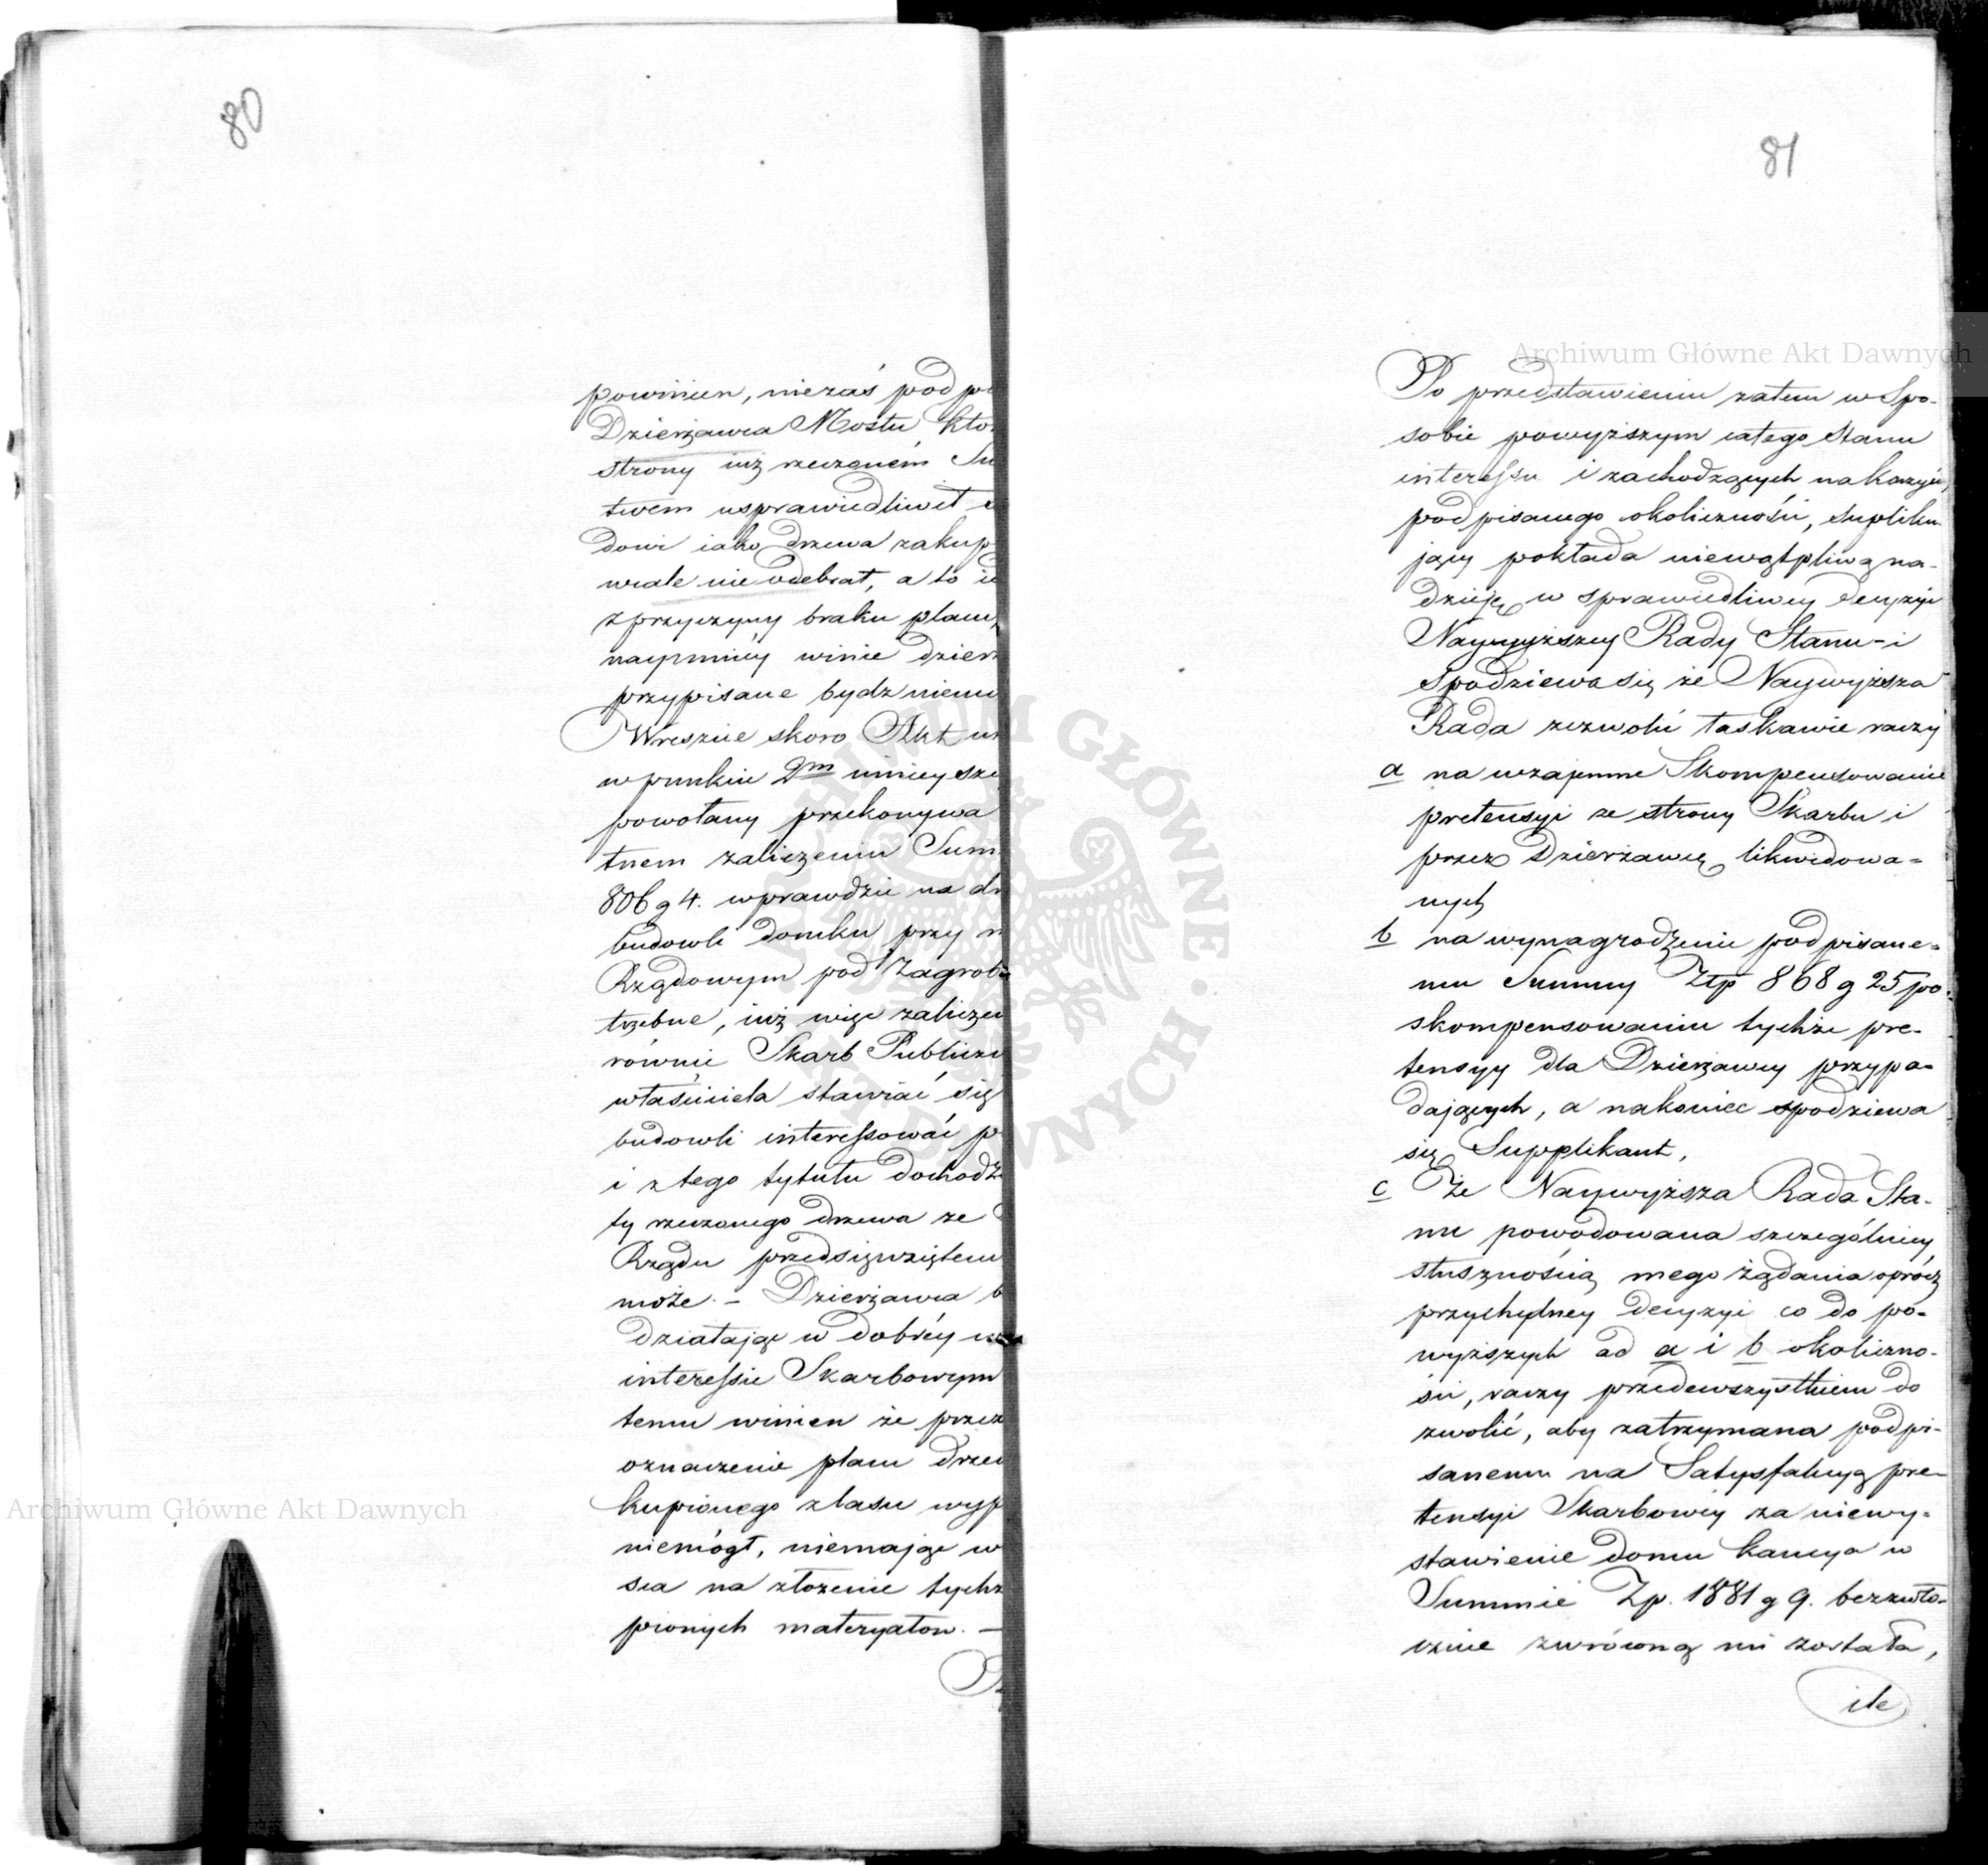 80
powinien, niezaś pod po
Dzierżawca Mostu kto
strony iuż rzeczonem Su
twem usprawiedliwił
dowi iako drzewa zakup
wcale nie odebrał, a to i
z przyczyny braku placu,
naymniéy winie dzierż
przypisane bydz niemo
Wreszcie skoro Akt u
w punkcie 2gm ninieysze
powołany przekonywa
tnem zaliczeniu Sum
806 g 4. wprawdzie na dr
budowli domku przy m
Rządowym pod Zagrob
trzebne, iuż więc zalicze
równie Skarb Publicz
właściciela stawiać się
budowli interessować p
i z tego tytułu dochodz
ty rzeczonego drzewa ze
Rządu przedsięwzietem
może. – Dzierżawca b
działając w dobréy
interessie Skarbowym
temu winien że przez
oznaczenie placu drze
kupionego z lasu wyp
niemógł, niemając
sca na złożenie tychż
pionych materyałow. –
81
Po przedstawieniu zatem w Spo-
sobie powyższym całego Stanu
interessu i zachodzących na korzyść
podpisanego okoliczności, supliku
jący pokłada niewątpliwą na-
dzieję w sprawiedliwey decyzyi
Naywyższey Rady Stanu – i
spodziewa się że Naywyższa
Rada zezwolić łaskawie raczy
a na wzajemne Skompensowanie
pretensyi ze strony Skarbu i
przez Dzierżawcę likwidowa=
nych
b na wynagrodzenie podpisane=
mu Summy Złp 868 g 25 po
skompensowaniu tychże pre-
tensyy dla Dzierżawcy przypa=
dających, a nakoniec spodziewa
się Supplikant,
c Że Naywyższa Rada Sta-
nu powodowana szczególniey
słusznością mego żądania oprócz
przychylney decyzyi co do po=
wyższych ad a i b okoliczno-
ści, raczy przedewszystkiem do
zwolić, aby zatrzymana podpi-
sanemu na Satysfakcyą pre-
tensyi Skarbowéy za niewy=
stawienie domu kaucya w
Summie Zp. 1881 g 9. bezzwło-
cznie zwróconą mi została,
ile
Archiwum Główne Akt Dawnych
Archiwum Główne Akt Dawnych